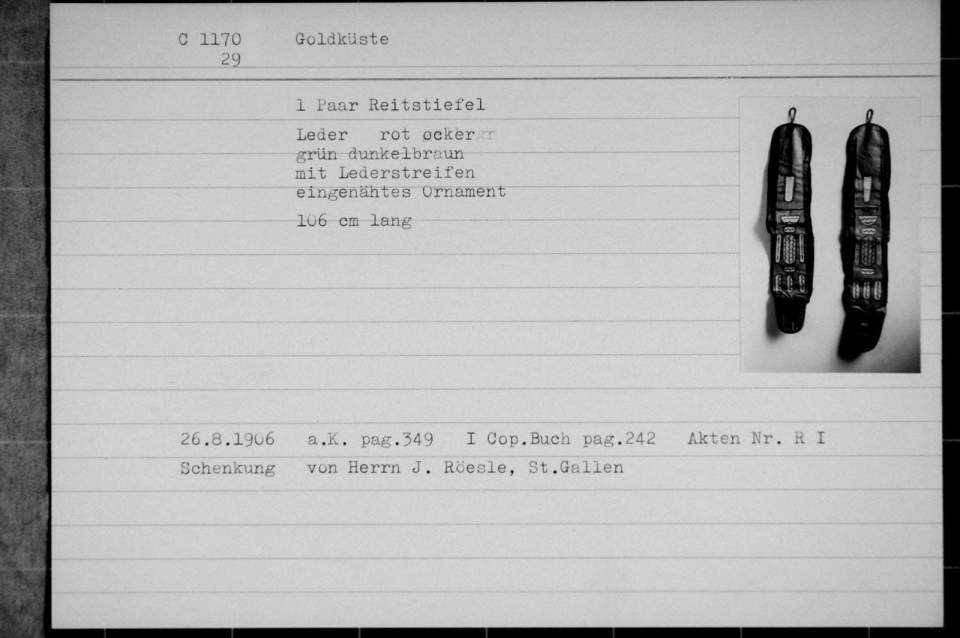 C 1170 Goldküste
29
1 Paar Reitstiefel
Leder rot ocker
grün dunkelbraun
mit Lederstreifen
eingenähtes Ornament
106 cm lang
26.8.1906 a.K. pag.349 I Cop.Buch pag.242 Akten Nr. R I
Schenkung von Herrn J. Röesle, St.Gallen